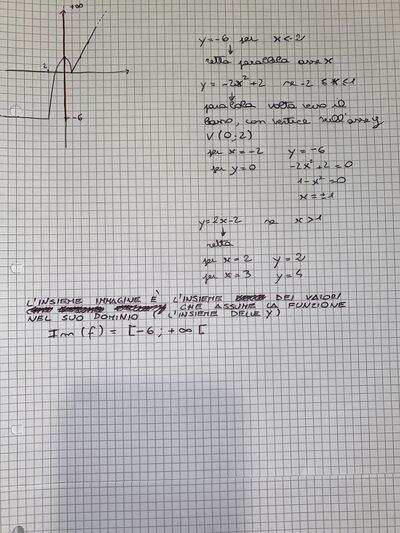 +∞
2
-6
y=-6 per x<-2
↓
retta parallela asse x
y = -2x²+2 se -2 ≤ x ≤ 1
↓
parabola volta verso il
basso, con vertice sull'asse y
V (0;2)
per x=-2 y=-6
per y=0 -2x²+2=0
1-x²=0
x=±1
y=2x-2 se x>1
↓
retta
per x=2 y=2
per x=3 y=4
L'INSIEME IMMAGINE È L'INSIEME DEI VALORI
CHE ASSUME LA FUNZIONE
NEL SUO DOMINIO ( L'INSIEME DELLE Y)
Im (f) = [-6; +∞ [